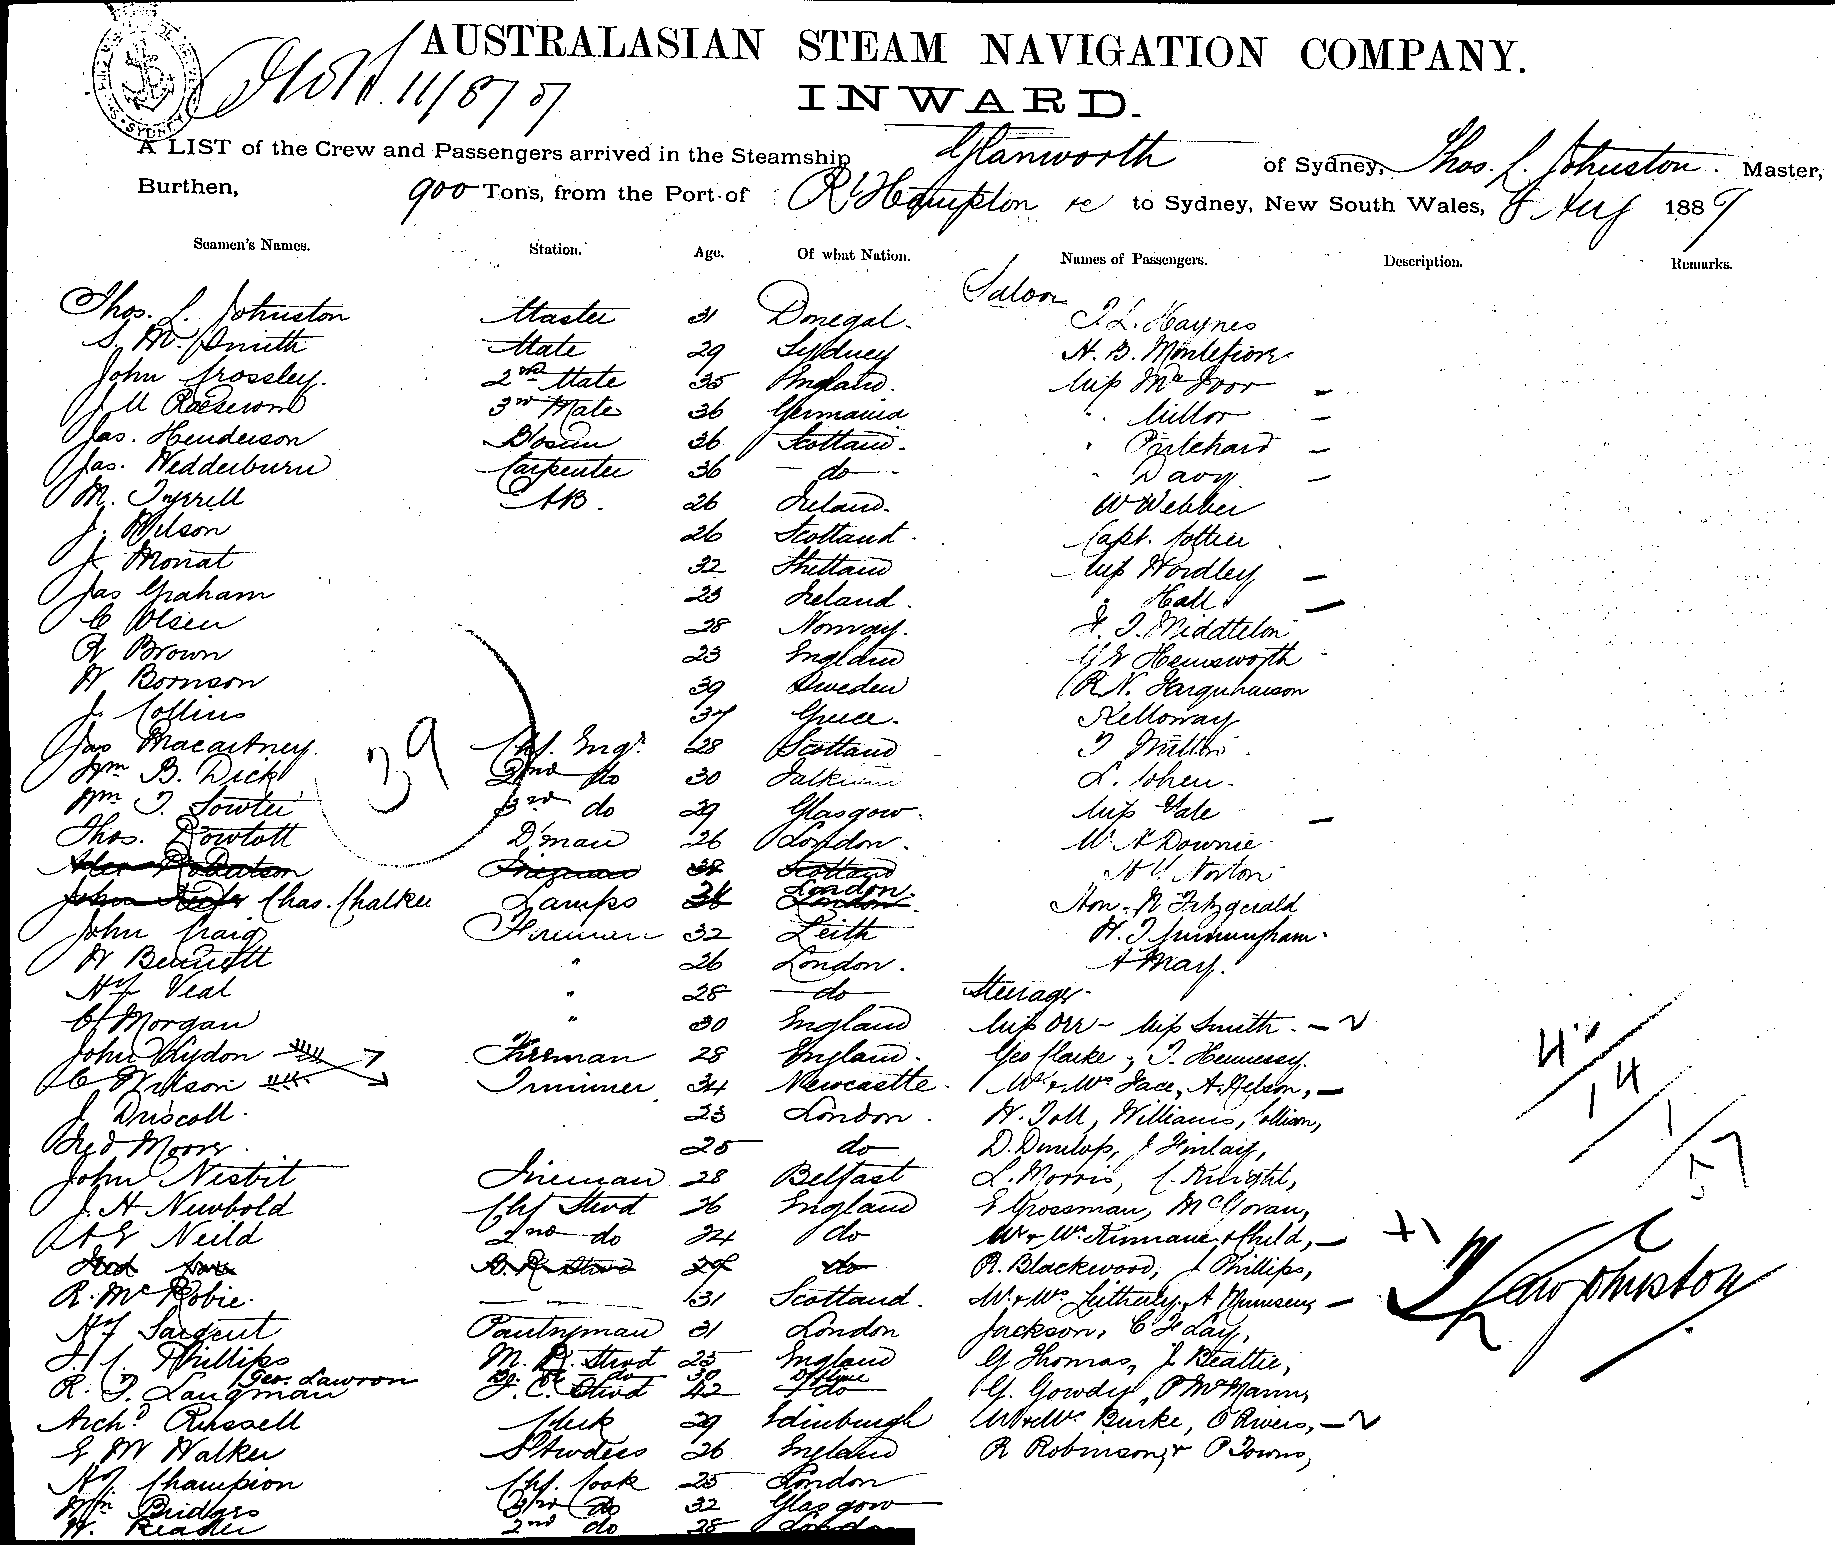 AUSTRALASIAN STEAM NAVIGATION COMPANY.
11/8/87
INWARD.
A LIST of the Crew and Passengers arrived in the Steamship Glanworth of Sydney, Thos. L. Johnston. Master,
Burthen, 900 Tons, from the Port of Rkhampton &c to Sydney, New South Wales, 8 Aug 188
Seamen's Names. Station. Age. Of what Nation. Names of Passengers. Description. Remarks.
Saloon
Thos. L. Johnston Master 31 Donegal. T. L. Haynes
S. M. Smith Mate 29 Sydney H. B. Montefiore
John Crossley. 2nd Mate 35 England. Miss McIvor
3rd Mate 36 Germania " Millor
Jas. Henderson Bosun 36 Scotland. " Pritchard
Jas. Wedderburn Carpenter 36 do " Davy
M. Tyrrell AB. 26 Ireland. W Webber
J. Wilson 26 Scotland. Capt. Cottier
J. Monat 32 Shetland Miss Wordley
Jas Graham 23 Ireland. " Hall
C Olsen 28 Norway. Middleton
R Brown 23 England Hemsworth
W Bornson 39 Sweden R. N. Farquharson
J. Collins 37 Greece. Kelloway
Jas Macartney. Chf. Engr. 28 Scotland T
Wm B. Dick 2nd do 30 L. Cohen.
Wm T. Sowter 3rd do 29 Glasgow. Miss Gale
39
Thos. Dowlott D'man 26 London. W. A Downie
Alex Robertson Fireman 38 Scotland Norton
John Chas. Chalker Lamps 36 London. Hon. R Fitzgerald
John Craig Firemen 32 Leith H. T Cunningham.
W Bennett " 26 London. A May.
Hy Veal " 28 do Steerage.
C Morgan " 30 England Miss Orr - Miss Smith.
John Lydon Fireman 28 England. Geo Clarke, T. Hennessy.
C Wilson Trimmer 34 Newcastle. Mr & Mrs Face, A. Nelson,
J. Driscoll. 23 London. W. Toll, Williams, Collian,
Fred Moore. 25 do D. Dunlop, J Finlay,
John Nesbit Fireman 28 Belfast L. Morris, C. Knight,
J. H Newbold Chf Stwd 26 England E Grossman, McGoran,
A E Neild 2nd do 24 do Mr & Mrs Kinnane & Child,
Fred Stwd 29 do R. Blackwood, J Phillips,
R. McRobie. 31 Scotland. Mr & Mrs A
Hy Sargent Pantryman 31 London Jackson, C F Lay,
Phillips M. R. Stwd 25 England G Thomas, J Beattie,
Geo. Lawron do 30
R. T. Langman F. C. Stwd 42 do G. Gowdy, P McMannus
Archd Russell Clerk 29 Edinburgh Mr & Mrs Burke, O Rivers,
E M Walker Stwdess 26 England R Robinson, & P Towns,
Hy. Champion Chf. Cook 25 London
Wm Bridges 3rd do 32 Glasgow
W. Reader 2nd do 28 London
14
1
57
+1
T Law Johnston